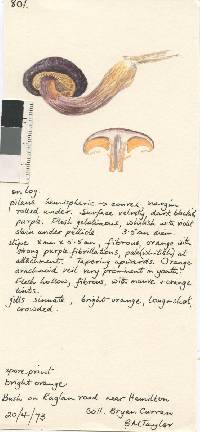 801.
on log.
pileus hemispheric → convex, margin
rolled under. Surface velvety, dark blackish
purple. Flesh gelatinous, whitish with violet
stain under pellicle 3.5cm diam
stipe 8cm x 0.5cm, fibrous, orange with
strong purple fibrillations, pale (whitish) at
attachment. Tapering upwards. Orange
arachnoid veil very prominent in youth.
Flesh hollow, fibrous, with mauve + orange
tints.
gills sinuate, bright orange, long + short,
crowded.
spore print
bright orange
Bush on Raglan road near Hamilton
20/4/73 Coll. Bryan Curran
B M Taylor